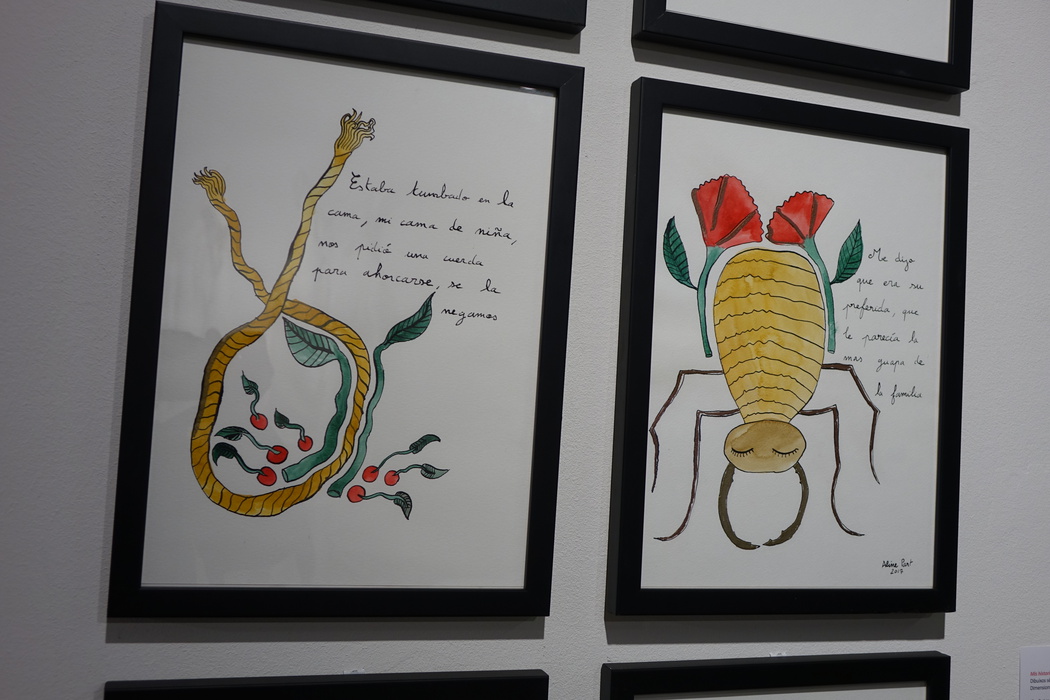 Estaba tumbado en la
cama, mi cama de niña,
nos pidió una cuerda
para ahorcarse, se la
negamos
Me dijo
que era su
preferida, que
le parecía la
mas guapa de
la familia
2017